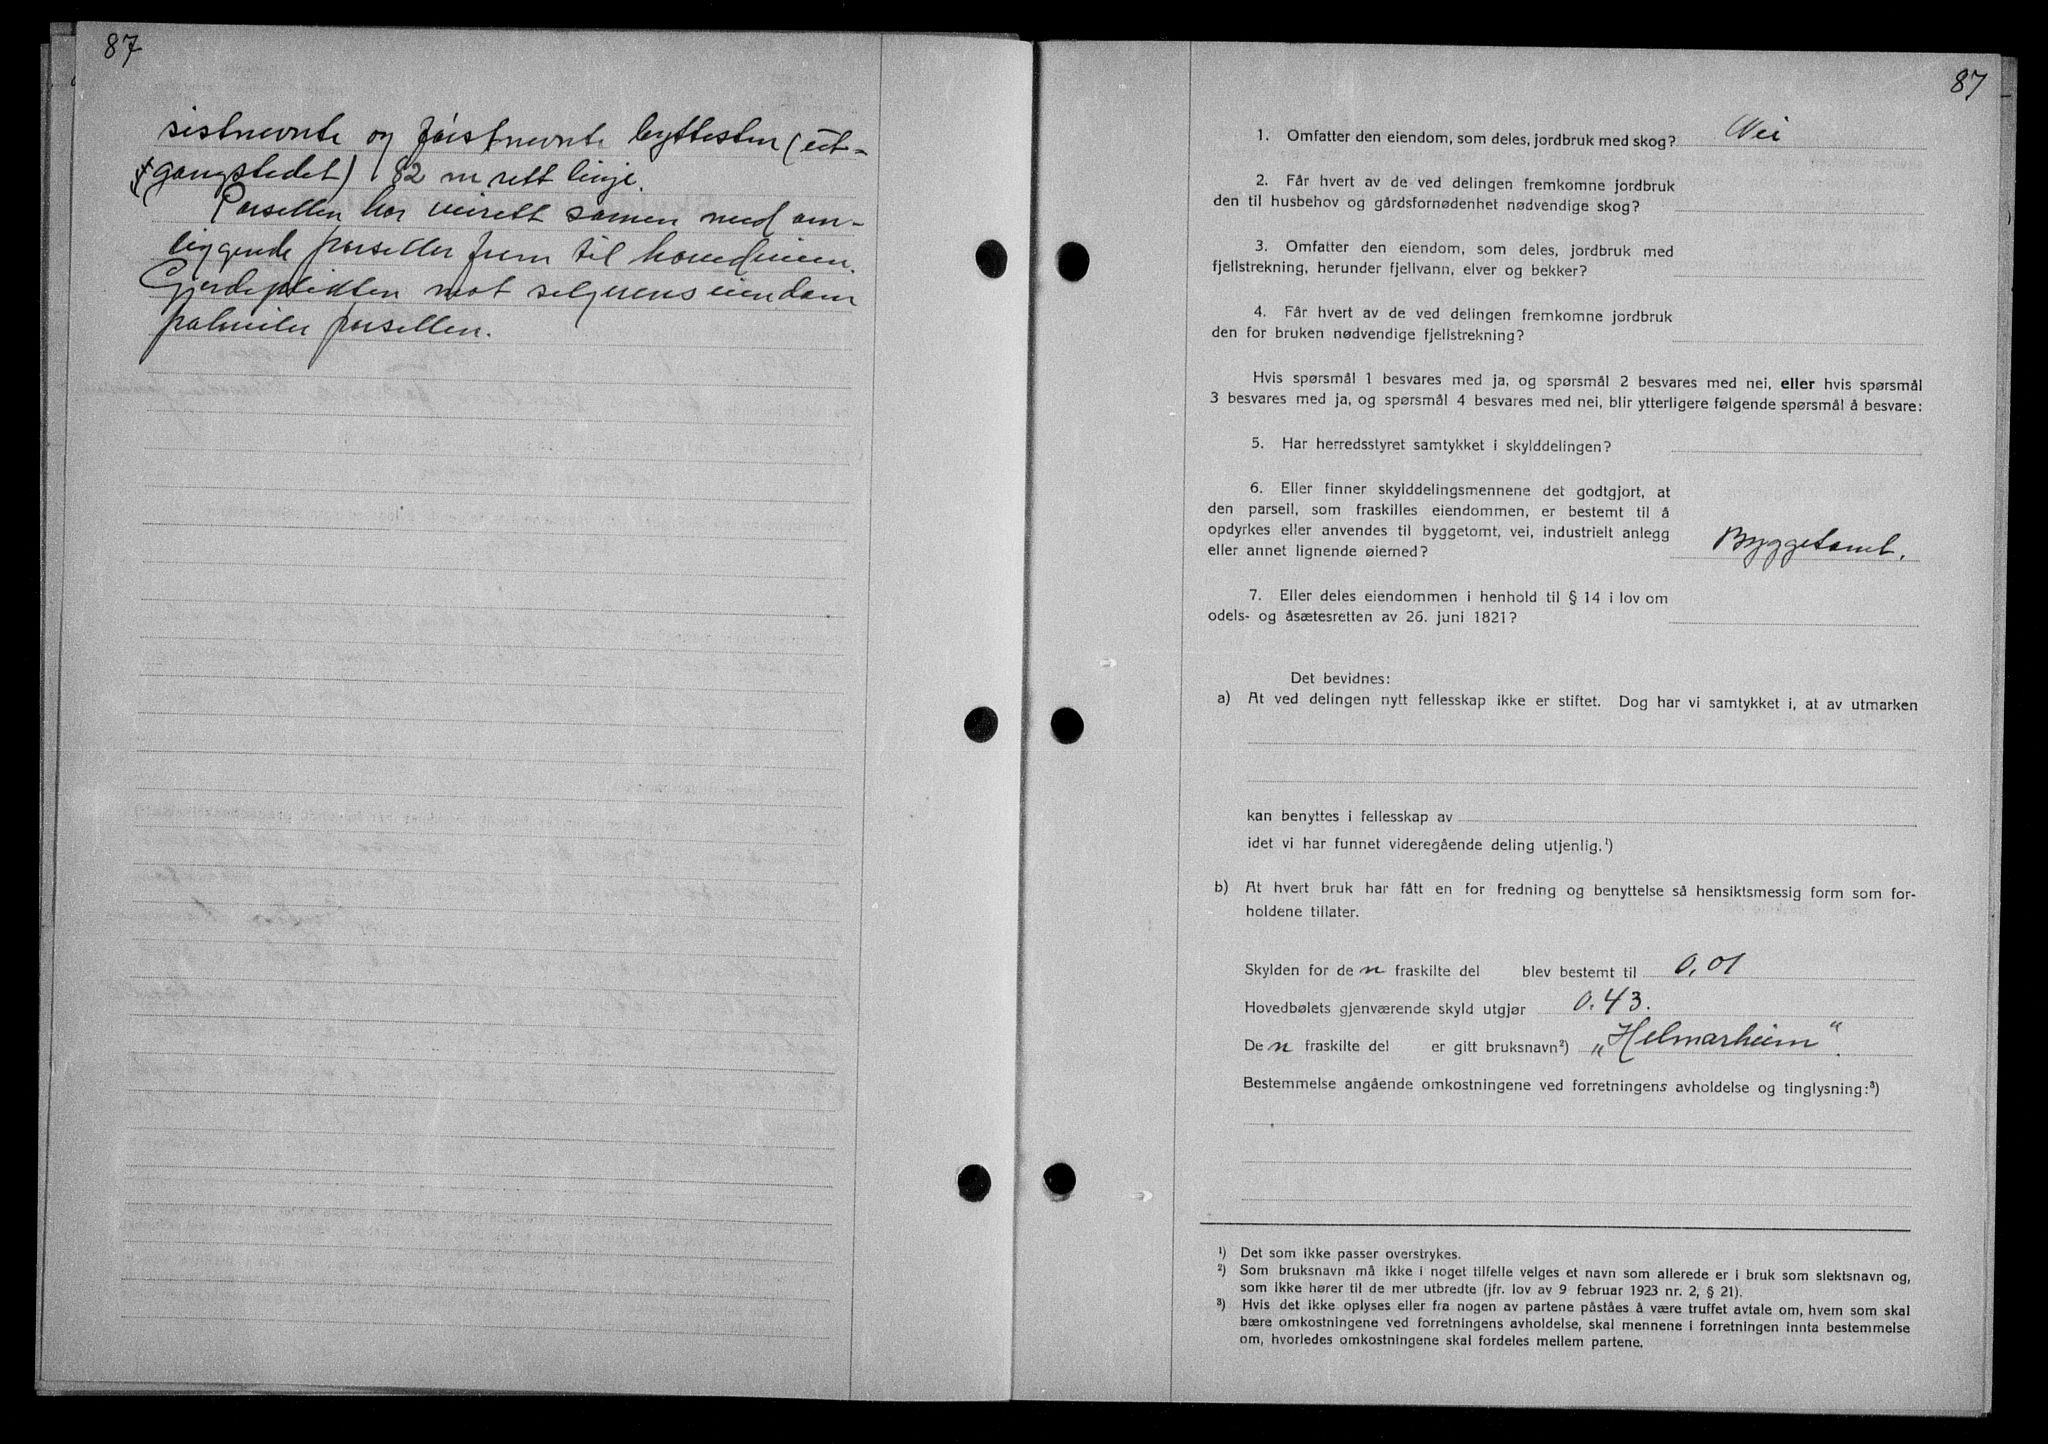 87
sistnevnte og förstnevnte byttesten (ut-
gangstedet) 82 m rett linje.
Parsellen har veirett samen med om-
liggende parseller frem til hovedveien.
Gjerdeplikten mot selgerens eiendom
påhviler parsellen.
87
1. Omfatter den eiendom, som deles, jordbruk med skog? Nei
2. Får hvert av de ved delingen fremkomne jordbruk
den til husbehov og gårdsfornødenhet nødvendige skog?
3. Omfatter den eiendom, som deles, jordbruk med
fjellstrekning, herunder fjellvann, elver og bekker?
4. Får hvert av de ved delingen fremkomne jordbruk
den for bruken nødvendige fjellstrekning?
Hvis spørsmål 1 besvares med ja, og spørsmål 2 besvares med nei, eller hvis spørsmål
3 besvares med ja, og spørsmål 4 besvares med nei, blir ytterligere følgende spørsmål å besvare:
5. Har herredsstyret samtykket i skylddelingen?
6. Eller finner skylddelingsmennene det godtgjort, at
den parsell, som fraskilles eiendommen, er bestemt til å
opdyrkes eller anvendes til byggetomt, vei, industrielt anlegg
eller annet lignende øiemed? Byggetomt.
7. Eller deles eiendommen i henhold til § 14 i lov om
odels- og åsætesretten av 26. juni 1821?
Det bevidnes:
a) At ved delingen nytt fellesskap ikke er stiftet. Dog har vi samtykket i, at av utmarken
kan benyttes i fellesskap av
idet vi har funnet videregående deling utjenlig.¹)
b) At hvert bruk har fått en for fredning og benyttelse så hensiktsmessig form som for-
holdene tillater.
Skylden for de n fraskilte del blev bestemt til 0,01
Hovedbølets gjenværende skyld utgjør 0.43.
De n fraskilte del er gitt bruksnavn²) „Helmarheim“.
Bestemmelse angående omkostningene ved forretningens avholdelse og tinglysning:³)
¹) Det som ikke passer overstrykes.
²) Som bruksnavn må ikke i noget tilfelle velges et navn som allerede er i bruk som slektsnavn og,
som ikke hører til de mer utbredte (jfr. lov av 9 februar 1923 nr. 2, § 21).
³) Hvis det ikke oplyses eller fra nogen av partene påståes å være truffet avtale om, hvem som skal
bære omkostningene ved forretningens avholdelse, skal mennene i forretningen innta bestemmelse
om, hvorledes omkostningene skal fordeles mellem partene.